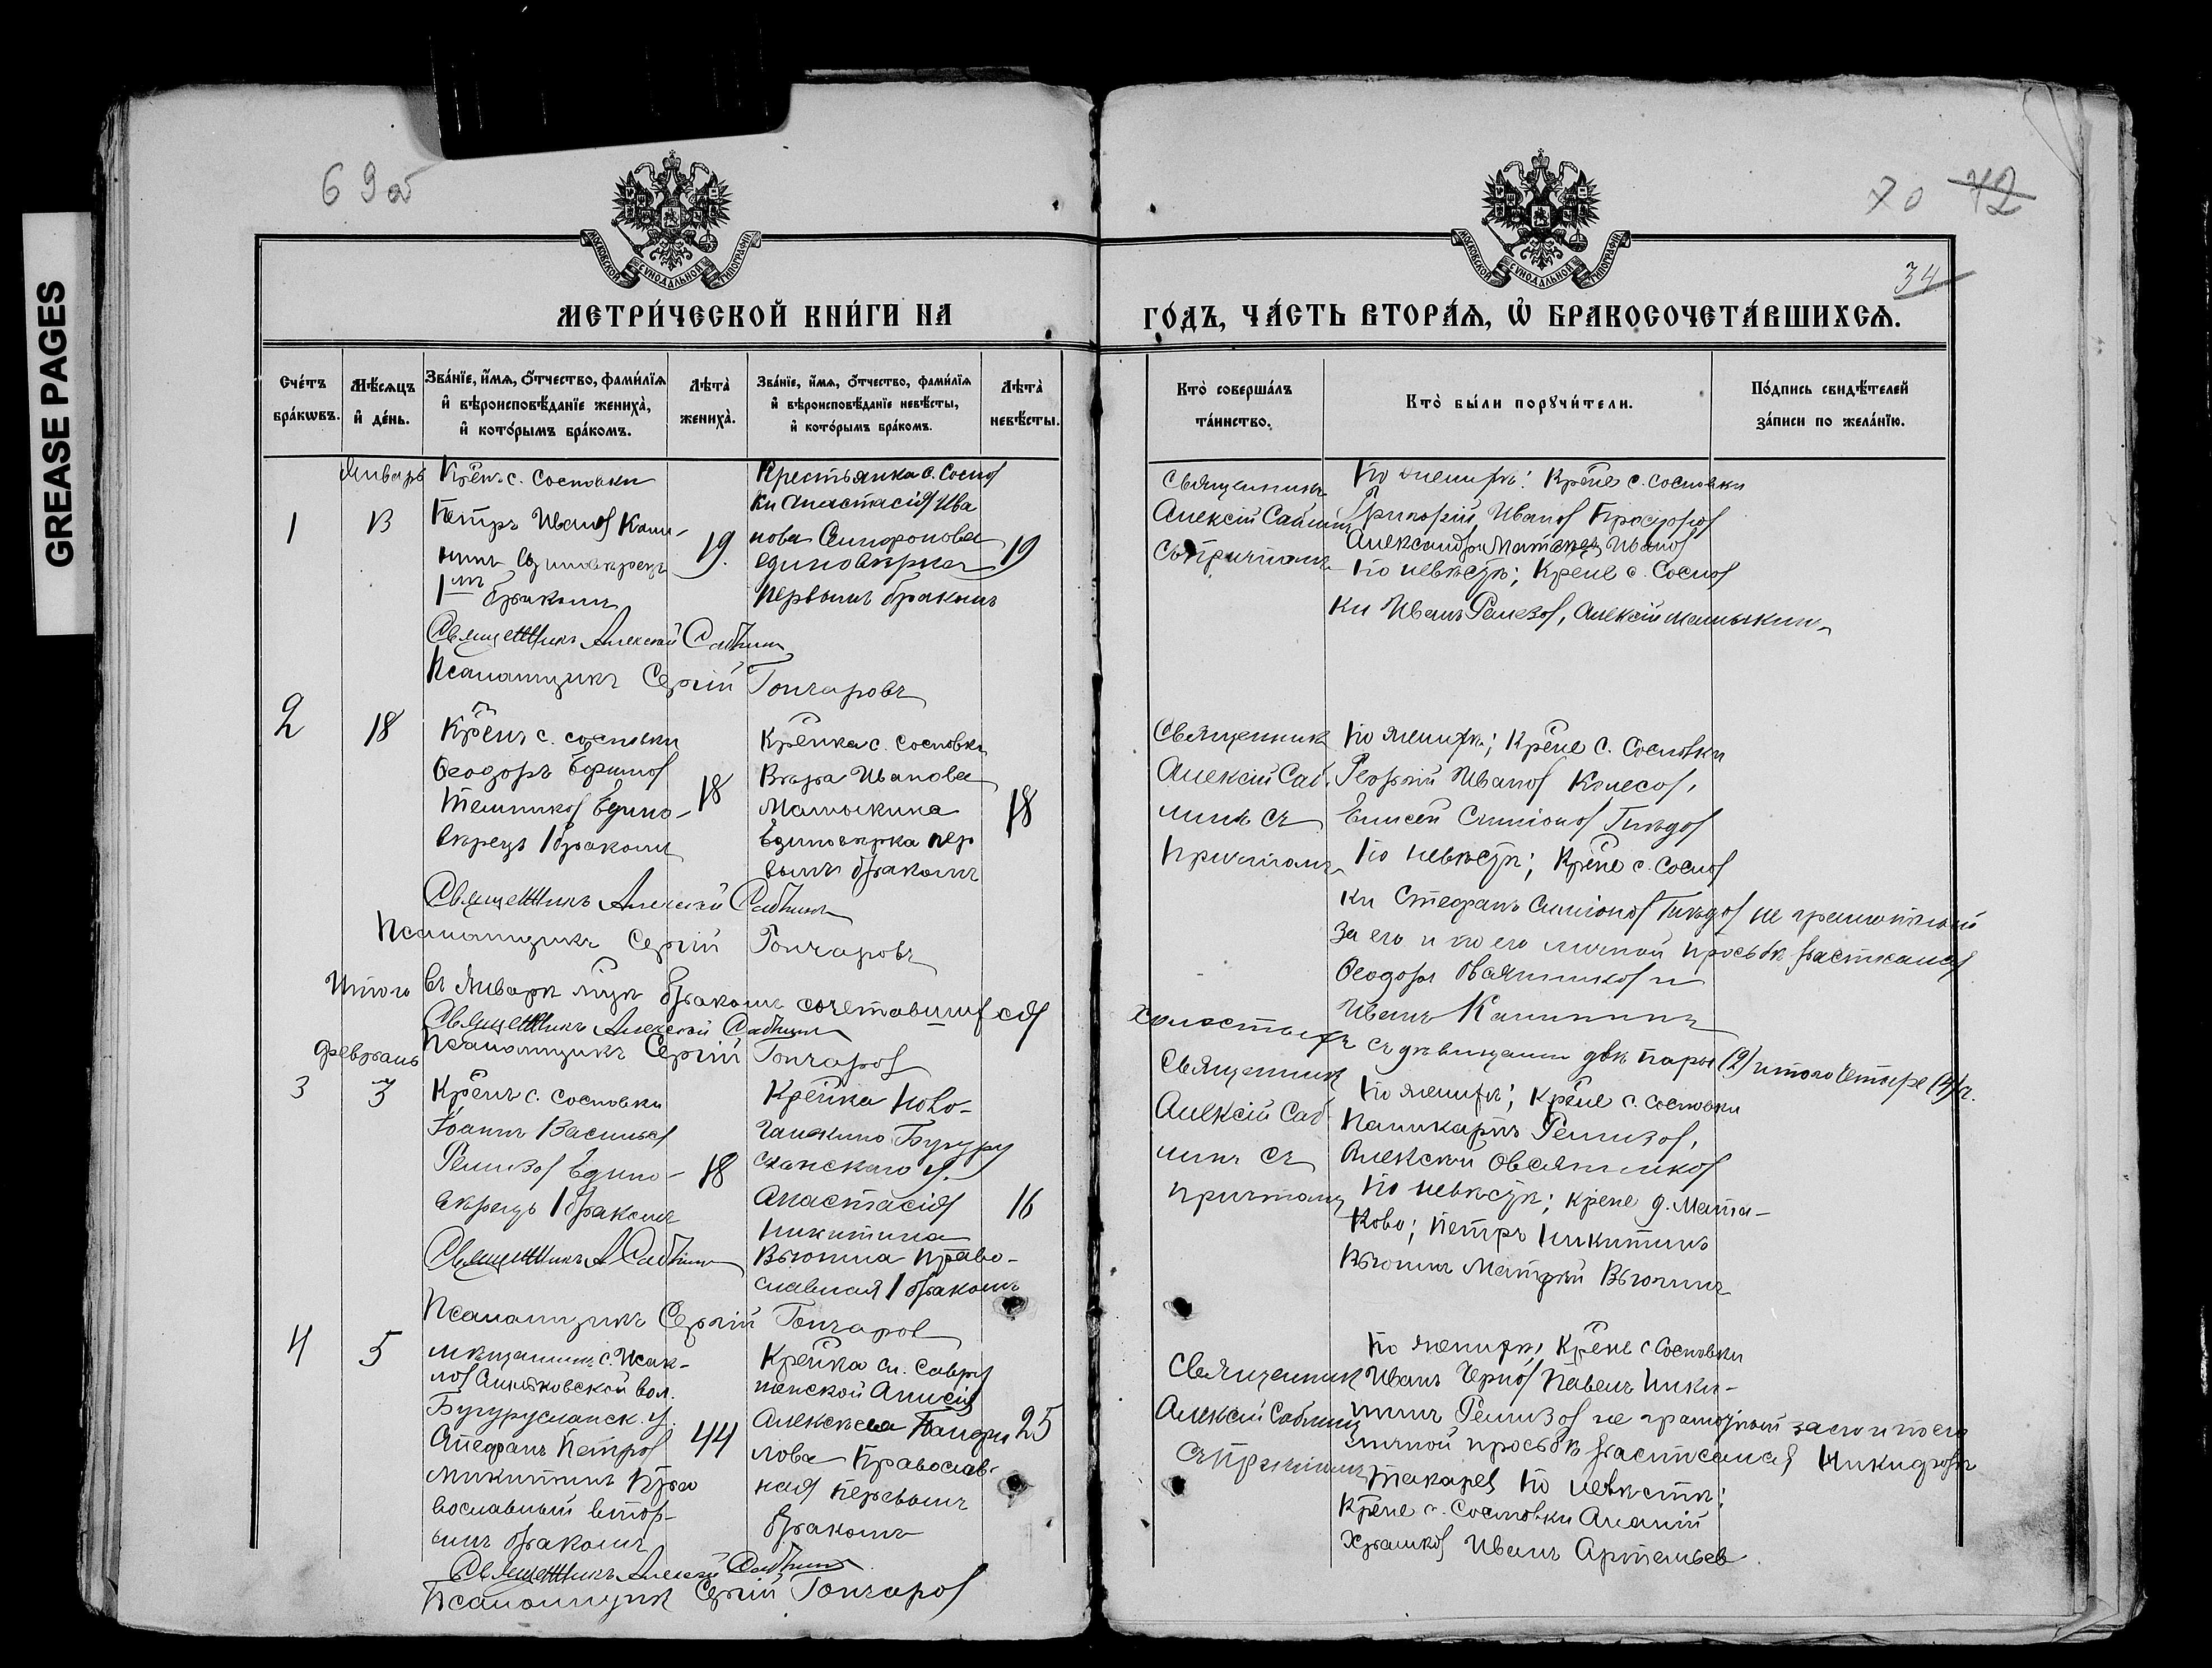 GREASE PAGES
69об
МОСКОВСКОЙ СѴНОДАЛЬНОЙ ТИПОГРАФІИ
МЕТРИ́ЧЕСКОЙ КНИ́ГИ НА
Сче́тъ бра́кѡвъ.
Мѣ́сяцъ и҆ де́нь.
Зва́нїе, и҆́мѧ, ѻ҆́тчество, фамиⷧ҇їѧ
и҆ вѣроисповѣ́данїе жениха̀,
и҆ кото́рымъ бра́комъ.
Лѣта̀ жениха̀.
Зва́нїе, и҆́мѧ, ѻ҆́тчество, фамилїѧ
и҆ вѣроисповѣ́данїе невѣ́сты,
и҆ кото́рымъ бра́комъ.
Лѣта̀ невѣ́сты.
Январь
1
Крѣнъ с. Сосновки
Петръ Иванов Кали-
нинъ Единовѣрецъ
1мъ бракомъ
19.
Крестьянка с. Соснов
ки Анастасія Ива
нова
единовѣрка
первымъ бракомъ
19
Священникъ Алексѣй Саблинъ
Псаломщикъ Сергій Гончаровъ
2
18
Крѣнъ с. Сосновки
Ѳеодоръ Ефимов
Темников Едино-
вѣрецъ 1 бракомъ
18
Крѣнка с. Сосновки
Вѣра Иванова
Малыкина
Единовѣрка пер
вымъ бракомъ
18
Священникъ Алексѣй Саблинъ
Псаломщикъ Сергій Гончаровъ
Итого въ Январѣ мцѣ бракомъ сочетавшихся
Священникъ Алексѣй Саблинъ
Псаломщикъ Сергій Гончаров
Февраль
3
3
Крѣнъ с. Сосновки
Іоаннъ Васильев
Ремизов Едино-
вѣрецъ 1 бракомъ
18
Крѣнка Ново-
Ганькино Бугуру
сланскаго у.
Анастасія
Никитина
Вьюшина Право-
славная 1 бракомъ
16
Священникъ А Саблинъ
Псаломщикъ Сергій Гончаров
4
5
Мѣщанинъ с. Исак-
лов вол.
Бугурусланск. у.
Стефанъ Петров
Никитинъ Пра
вославный втор-
ымъ бракомъ
44
Крѣнка
Анисія
Алексѣева Панфи
лова Православ-
ная первымъ
бракомъ
25
Священникъ Алексѣй Саблинъ
Псаломщикъ Сергій Гончаров
70 42
34
МОСКОВСКОЙ СѴНОДАЛЬНОЙ ТИПОГРАФІИ
ГО́ДЪ, ЧА́СТЬ ВТОРА́Ѧ, Ѽ БРАКОСОЧЕТА́ВШИХСѦ.
Кто̀ соверша́лъ та́инство.
Кто̀ бы́ли порꙋчи́тели.
По́дпись свидѣ́телей
за́писи по жела́нїю.
Священникъ
Алексій Саблинъ
съ причтомъ
По женихѣ: Крѣне с. Сосновки
Григорій Иванов
Александръ Иванов
По невѣстѣ; Крѣне с. Соснов
ки Иванъ Ремезов, Алексій Малыкинъ
Священникъ
Алексій Саб
линъ съ
причтомъ
По женихѣ; Крѣне с. Сосновки
Георгій Иванов Колесов,
Елисей Симіонов Гнѣдов
По невѣстѣ; Крѣне с. Соснов
ки Стефанъ Симіонов Гнѣдов не грамотный
За его и по его личной просьбѣ расписался
Ѳеодоръ Овсянников и
Иванъ Калининъ
холостыхъ съ дѣвицами двѣ пары (2) итого четыре (4) ч.
Священникъ
Алексій Саб
линъ съ
причтомъ
По женихѣ; Крѣне с. Сосновки
Поликарпъ Ремизов,
Алексѣй Овсянников
По невѣстѣ; Крѣне д. Мата-
ково; Петръ Никитинъ
Вьюшинъ Матфей Вьюшинъ
Священникъ
Алексій Саблинъ
съ причтомъ
По женихѣ, Крѣне с Сосновки
Иванъ Чернов Павелъ Ники-
тинъ Ремизов не грамотный за его и по его
личной просьбѣ расписался Никифоръ
Токарев По невѣстѣ;
Крѣне с. Сосновки Ананій
Храмков Иванъ Артемьев